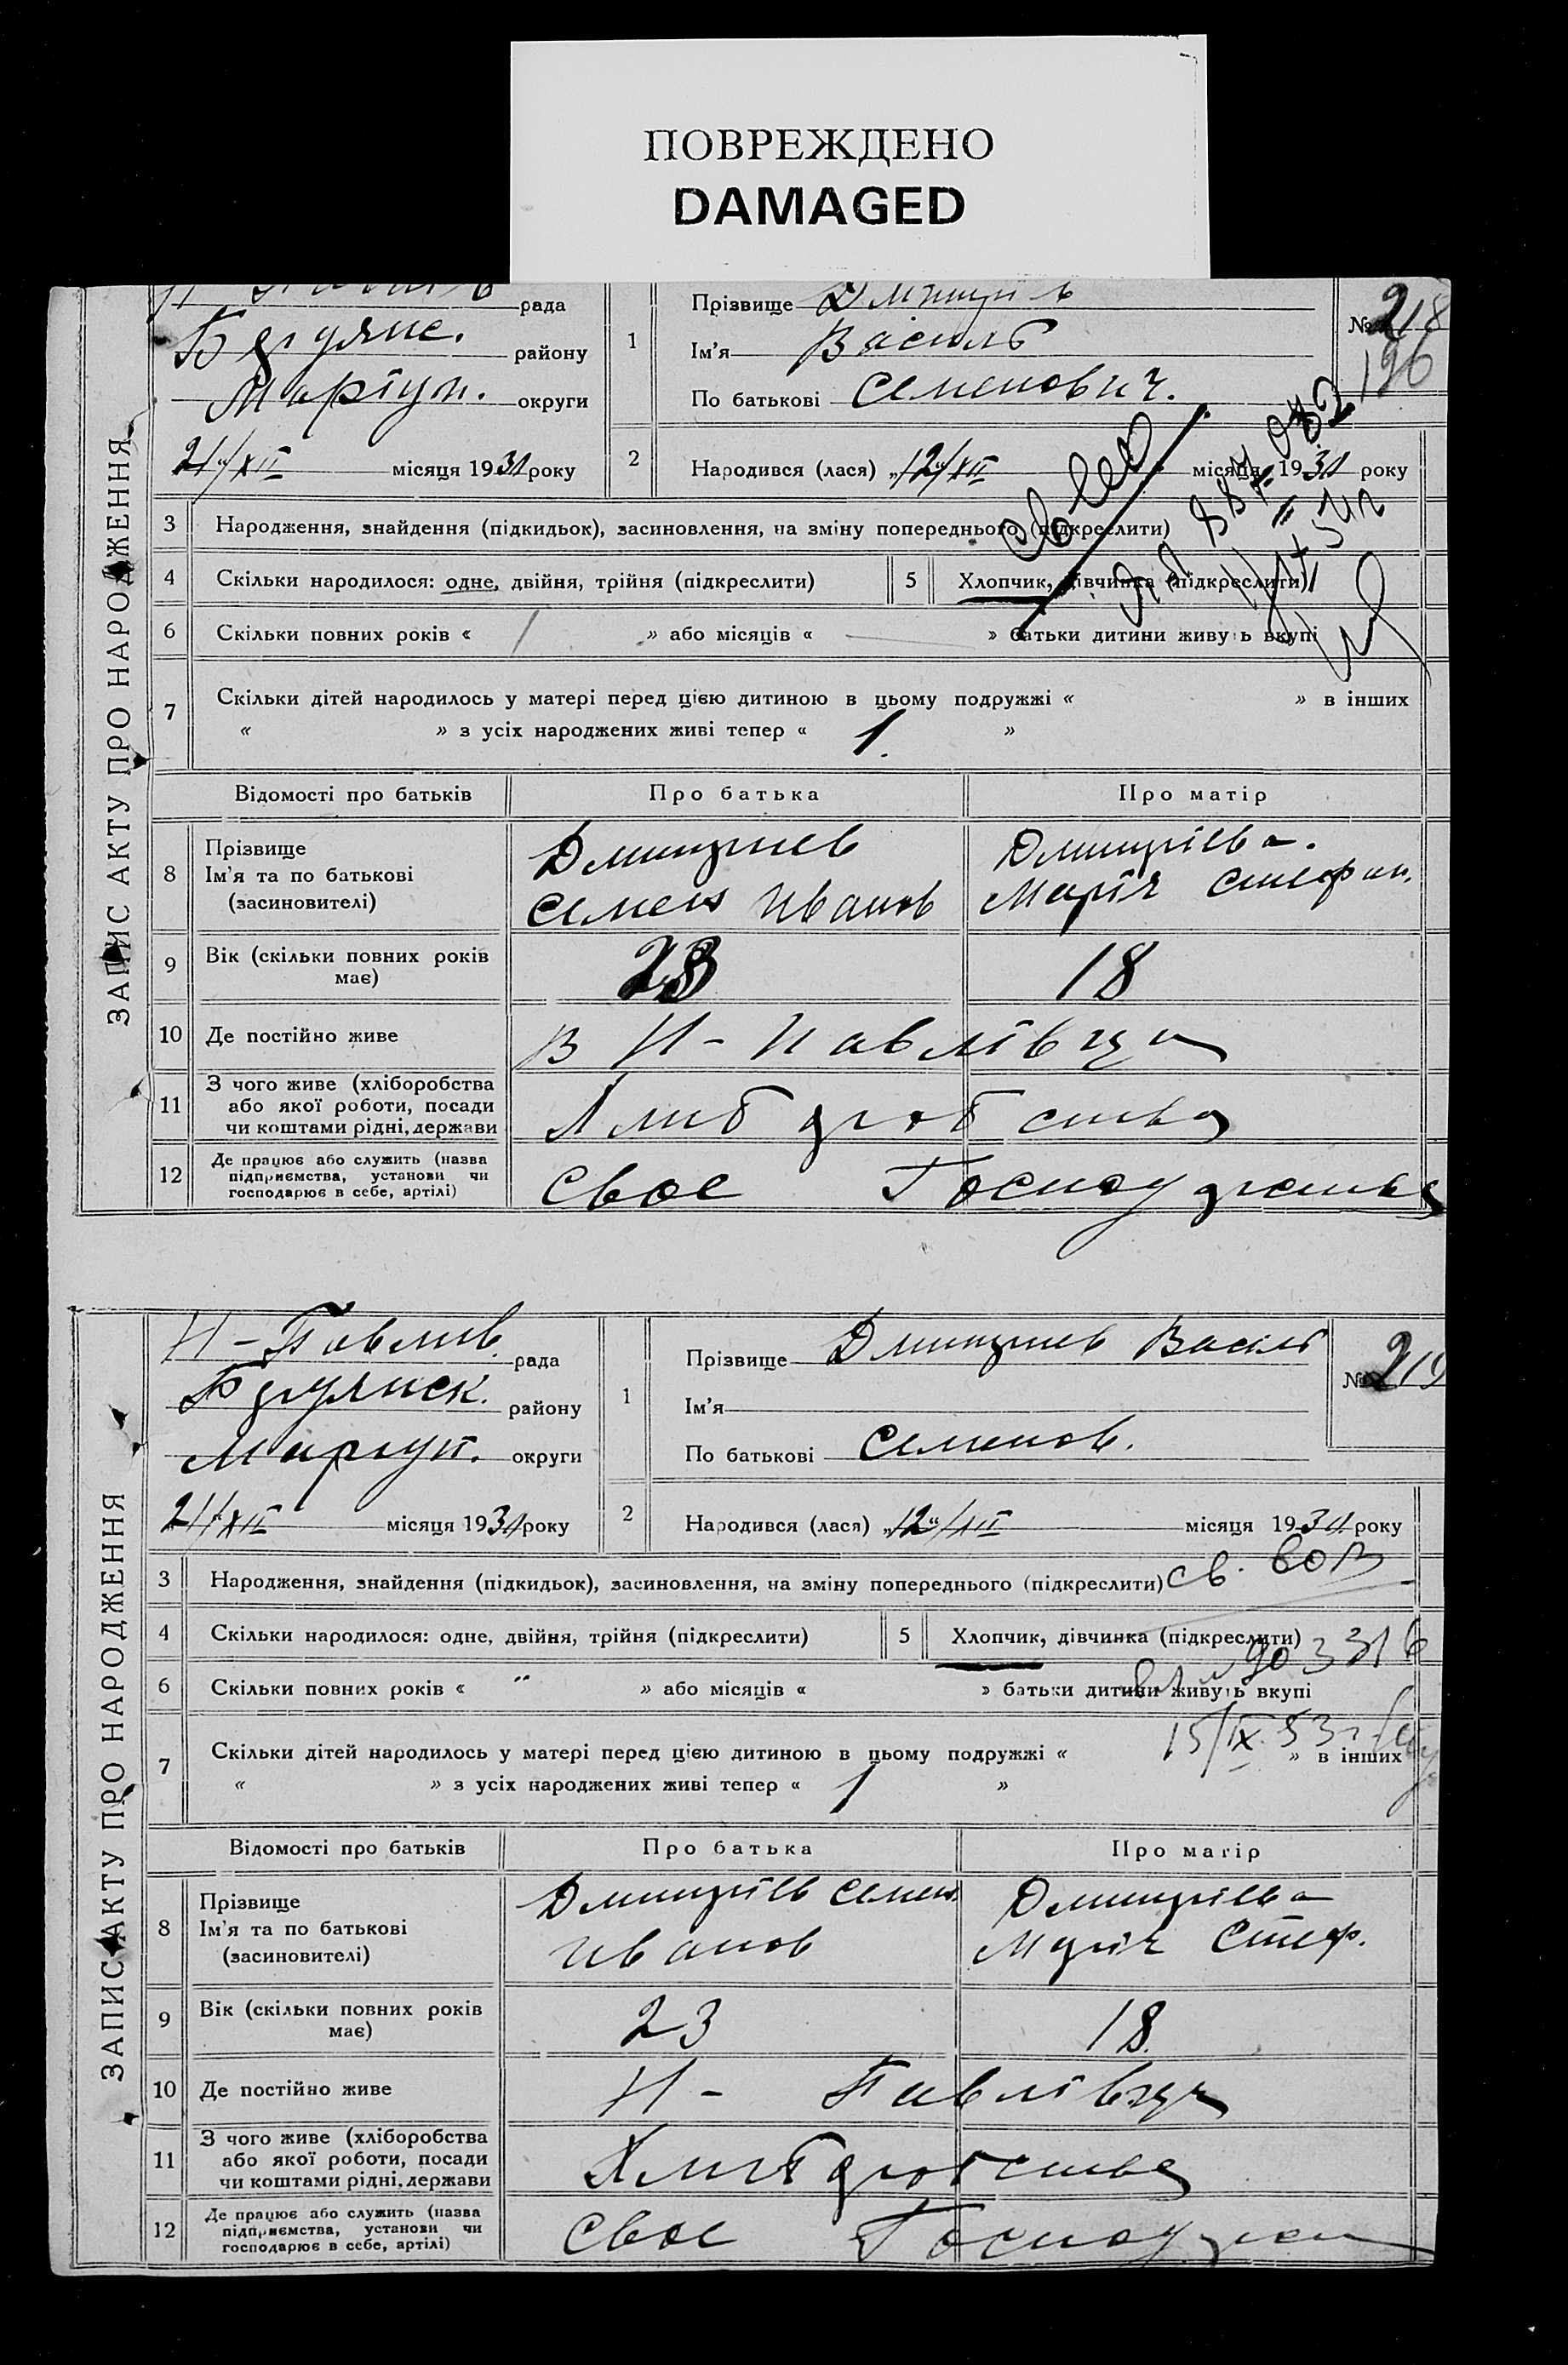 ПОВРЕЖДЕНО
DAMAGED
рада
Прізвище
№ 218
району
1
Ім'я Василь
196
округи
По батькові Семенович.
21/XII місяця 1930 року
2
Народився (лася) „12“/XII місяця 1930 року
ЗАПИС АКТУ ПРО НАРОДЖЕННЯ
3 Народження, знайдення (підкидьок), засиновлення, на зміну попереднього (підкреслити)
4 Скільки народилося: одне, двійня, трійня (підкреслити)
5 Хлопчик, дівчинка (підкреслити)
6 Скільки повних років « 1 » або місяців « — » батьки дитини живуть вкупі
7 Скільки дітей народилось у матері перед цією дитиною в цьому подружжі « » в інших
« » з усіх народжених живі тепер « 1. »
Відомості про батьків
Про батька
Про матір
8 Прізвище
Ім'я та по батькові
(засновителі)
Дмитриев
Семен Иванов
Дмитріева.
Марія Стефан.
9 Вік (скільки повних років
має)
18
10 Де постійно живе
в Н-Павлівці
11 З чого живе (хліборобства
або якої роботи, посади
чи коштами рідні, держави
12 Де працює або служить (назва
підприємства, установи чи
господарює в себе, артілі)
Свое
Н-Павлив.
рада
Прізвище Дмитриев Василь
№ 219
району
1
Ім'я
Мариуп. округи
По батькові Семенов.
21/XII місяця 1930 року
2
Народився (лася) „12“/XII місяця 1930 року
ЗАПИС АКТУ ПРО НАРОДЖЕННЯ
3 Народження, знайдення (підкидьок), засиновлення, на зміну попереднього (підкреслити)
4 Скільки народилося: одне, двійня, трійня (підкреслити)
5 Хлопчик, дівчинка (підкреслити)
903316
6 Скільки повних років « " » або місяців « » батьки дитини живуть вкупі
15/IX 53г
7 Скільки дітей народилось у матері перед цією дитиною в цьому подружжі « » в інших
« » з усіх народжених живі тепер « 1 »
Відомості про батьків
Про батька
Про матір
8 Прізвище
Ім'я та по батькові
(засиновителі)
Дмитріев Семен
Иванов
Дмитріева
Марія Стеф.
9 Вік (скільки повних років
має)
23
18
10 Де постійно живе
Н-Павлівці
11 З чого живе (хліборобства
або якої роботи, посади
чи коштами рідні, держави
12 Де працює або служить (назва
підприємства, установи чи
господарює в себе, артілі)
Свое